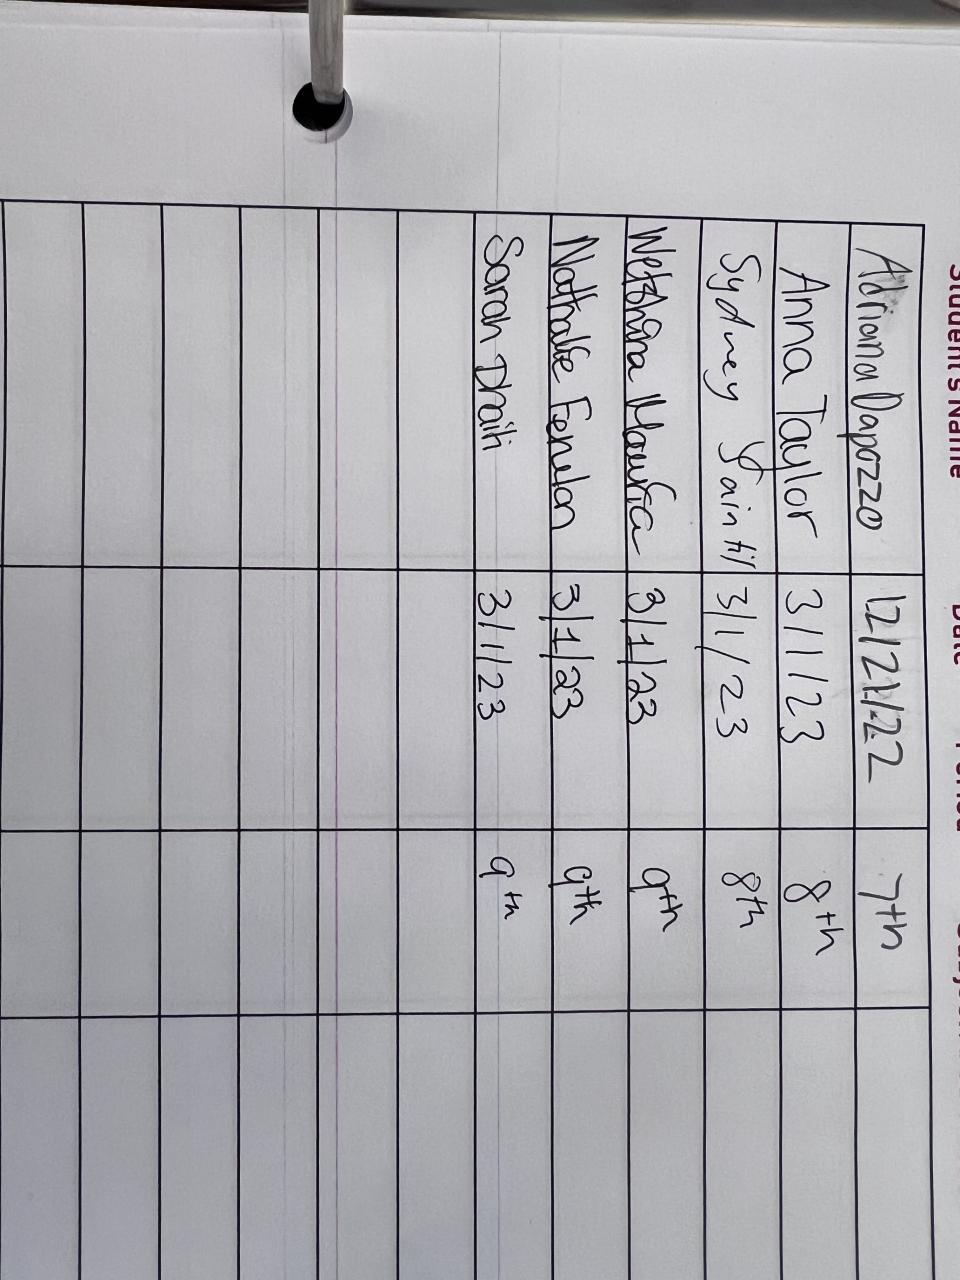 Student's Name Date Period
Adriana Dapozzo 12/21/22 7th
Anna Taylor 3/1/23 8th
Sydney Saintil 3/1/23 8th
3/1/23 9th
Nathalie Fenelon 3/1/23 9th
Sarah Draiti 3/1/23 9th